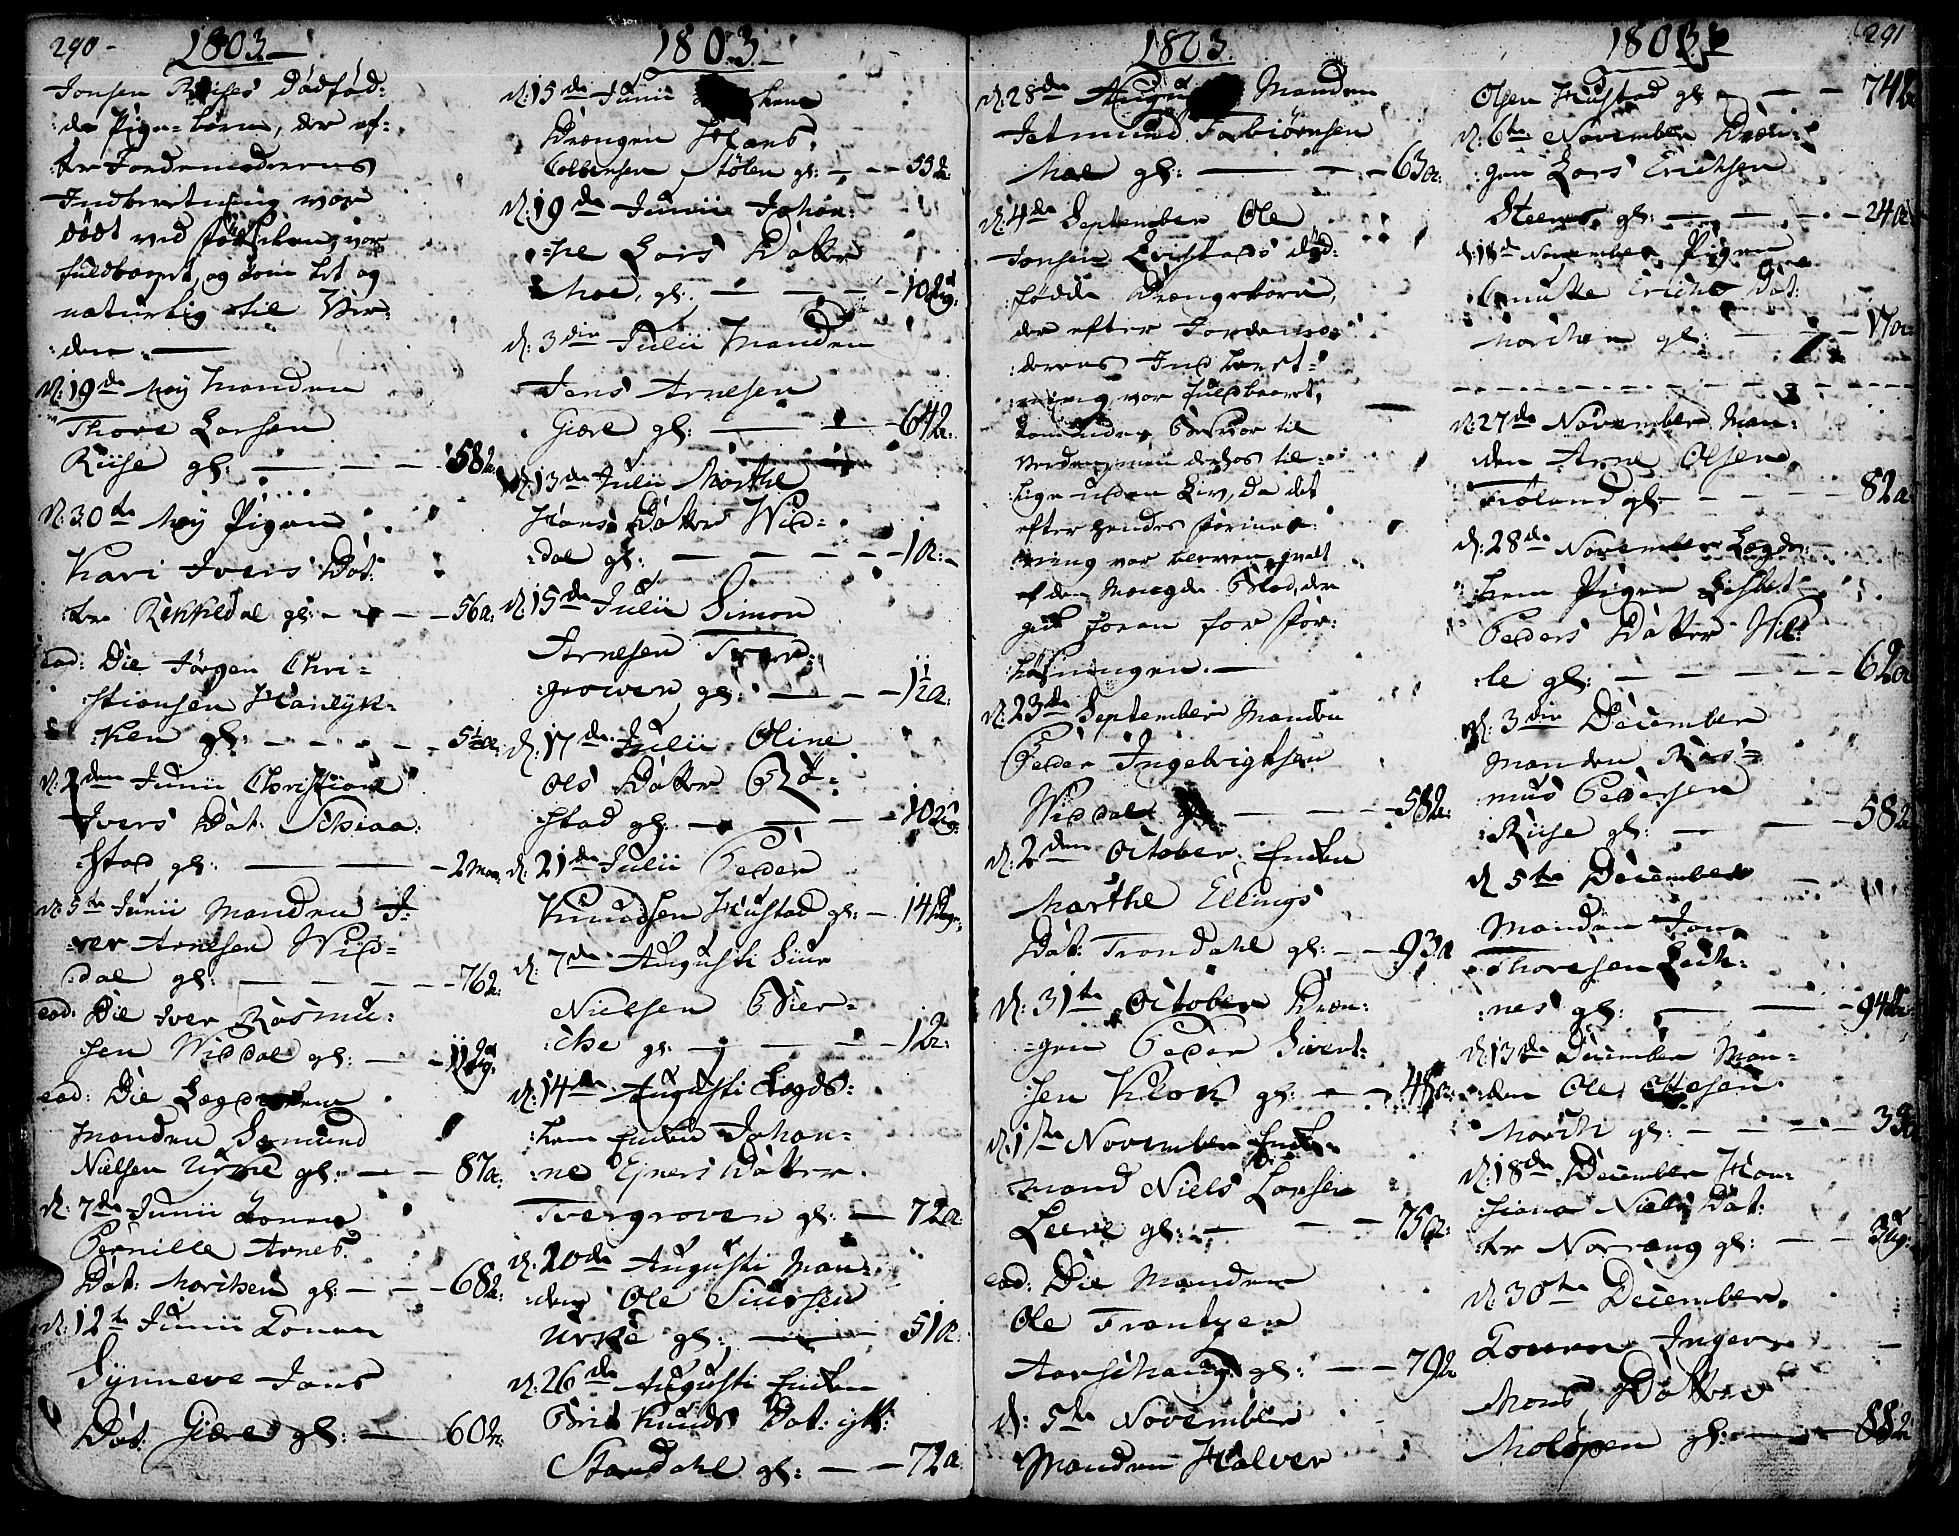 290-
1803-
Jonsen Riises Dødfød-
:de Pige-barn, der ef-
:ter Jordemoderens
Indberetning var
dødt ved fødselen, var
fuldbaaret, og kom let og
naturlig til Ver-
:den.
d: 19de Maj Manden
Thore Larsen
Riise gl: — 58 a:
d: 30te Maj Pigen
Kari Ivers Dat:
:ter Rekkedal gl: — 56 a:
eod: Die Jørgen Chri-
:stiansen Hanlyk-
:ken gl: — 5½ a:
d: 2den Junii Christiane
Ivers Dat: Schiaa-
:stad gl: — 2 maan:
d: 5te Junii Manden I-
:ver Arnesen Wid-
:dal gl: — 76 a:
eod: Die Iver Rasmu-
:sen Widdal gl: — 11 Dg:
eod: Die Lægdslem
Manden Samund
Nielsen Urke gl: — 87 a:
d: 7de Junii Konen
Pernille Arnes
Dat: Marchen gl: — 68 a:
d: 12te Junii Konen
Synneve Jons
Dat: Giære gl: — 60 a:
1803.-
d: 15de Junii
Drængen Hans
Colbensen Stølen gl: — 55 a:
d: 19de Junii Johan-
:ne Lars Datter
Moe, gl: — 10 Dg:
d: 3die Julii Manden
Jens Arnesen
Giære gl: — 64 a:
d: 13de Julii Marthe
Hans Datter Wid-
:dal gl: — 1 a:
d: 15de Julii Simon
Arnesen Tver-
:groven gl: — 1½ a:
d: 17de Julii Oline
Ols Datter Rø-
:stad gl: — 10 Dg:
d: 21de Julii Peder
Knudsen Hustad gl: — 14 Dg:
d: 7de Augusti Siur
Nielsen Bier-
:che gl: — 12 a:
d: 14de Augusti Lægds-
:lem Enken Johan-
:ne Ejners Datter
Tvergroven gl: — 72 a:
d: 20de Augusti Man-
:den Ole Siursen
Urke gl: — 51 a:
d: 26de Augusti Enken
Brit Knuds Dat:
Standahl gl: — 72 a:
1803.
d: 28de Augusti Manden
Jetmund Torbiørnsen
Moe gl: — 63 a:
d: 4de September Ole
Jonsen Qvistads død-
:fødde Drængebarn,
der efter Jordemo-
:derens Indberet-
:ning var fuldbaaret,
til
Verden, men dødes til-
:lige uden Liv, da det
efter hendes formee-
:ning var bleven qvalt
af den Mængde Blod, der
gik foran for for-
:løsningen.
d: 23de September Manden
Peder Ingebrigtsen
Widdal gl: — 58 a:
d: 2den October. Enken
Marthe Ellings
Dat: Trandahl gl: — 93 a
d: 31te October Dræn-
:gen Peder Sivert-
:sen Klok gl: — 45 a:
d: 1te November Enke-
mand Niels Larsen
Leere gl: — 75 a:
eod: Die Manden
Ole Frantzen
Aarschaug gl: — 79 a
d: 5te November
Manden Halver
1803
291
Olsen Hustad gl: — 74 a
d: 6te November Dræn-
:gen Lars Erichsen
Steens gl: — 24 a:
d: 18de November Pigen
Gunille Erichs Dat:
Marchen gl: — 17 a:
d: 27de November Man-
:den Arne Olsen
Frøland gl: — 82 a:
d: 28de November Lægds-
:lem Pigen Lisbet
Peders Datter Vil-
:le gl: — 62 a
d: 3die December
Manden Ras-
mus Pedersen
Riise gl: — 58 a
d: 5te December
Manden Jon
Thoresen Lech-
:nes gl: — 94 a:
d: 13de December Man-
:den Ole Ottesen
March gl: — 39
d: 18de December Han-
:siana Niels Dat-
:ter Norrang gl: — 3 Ug:
d: 30te December
Konen Inger
Mons Datter
Moldskreen gl: — 88 a